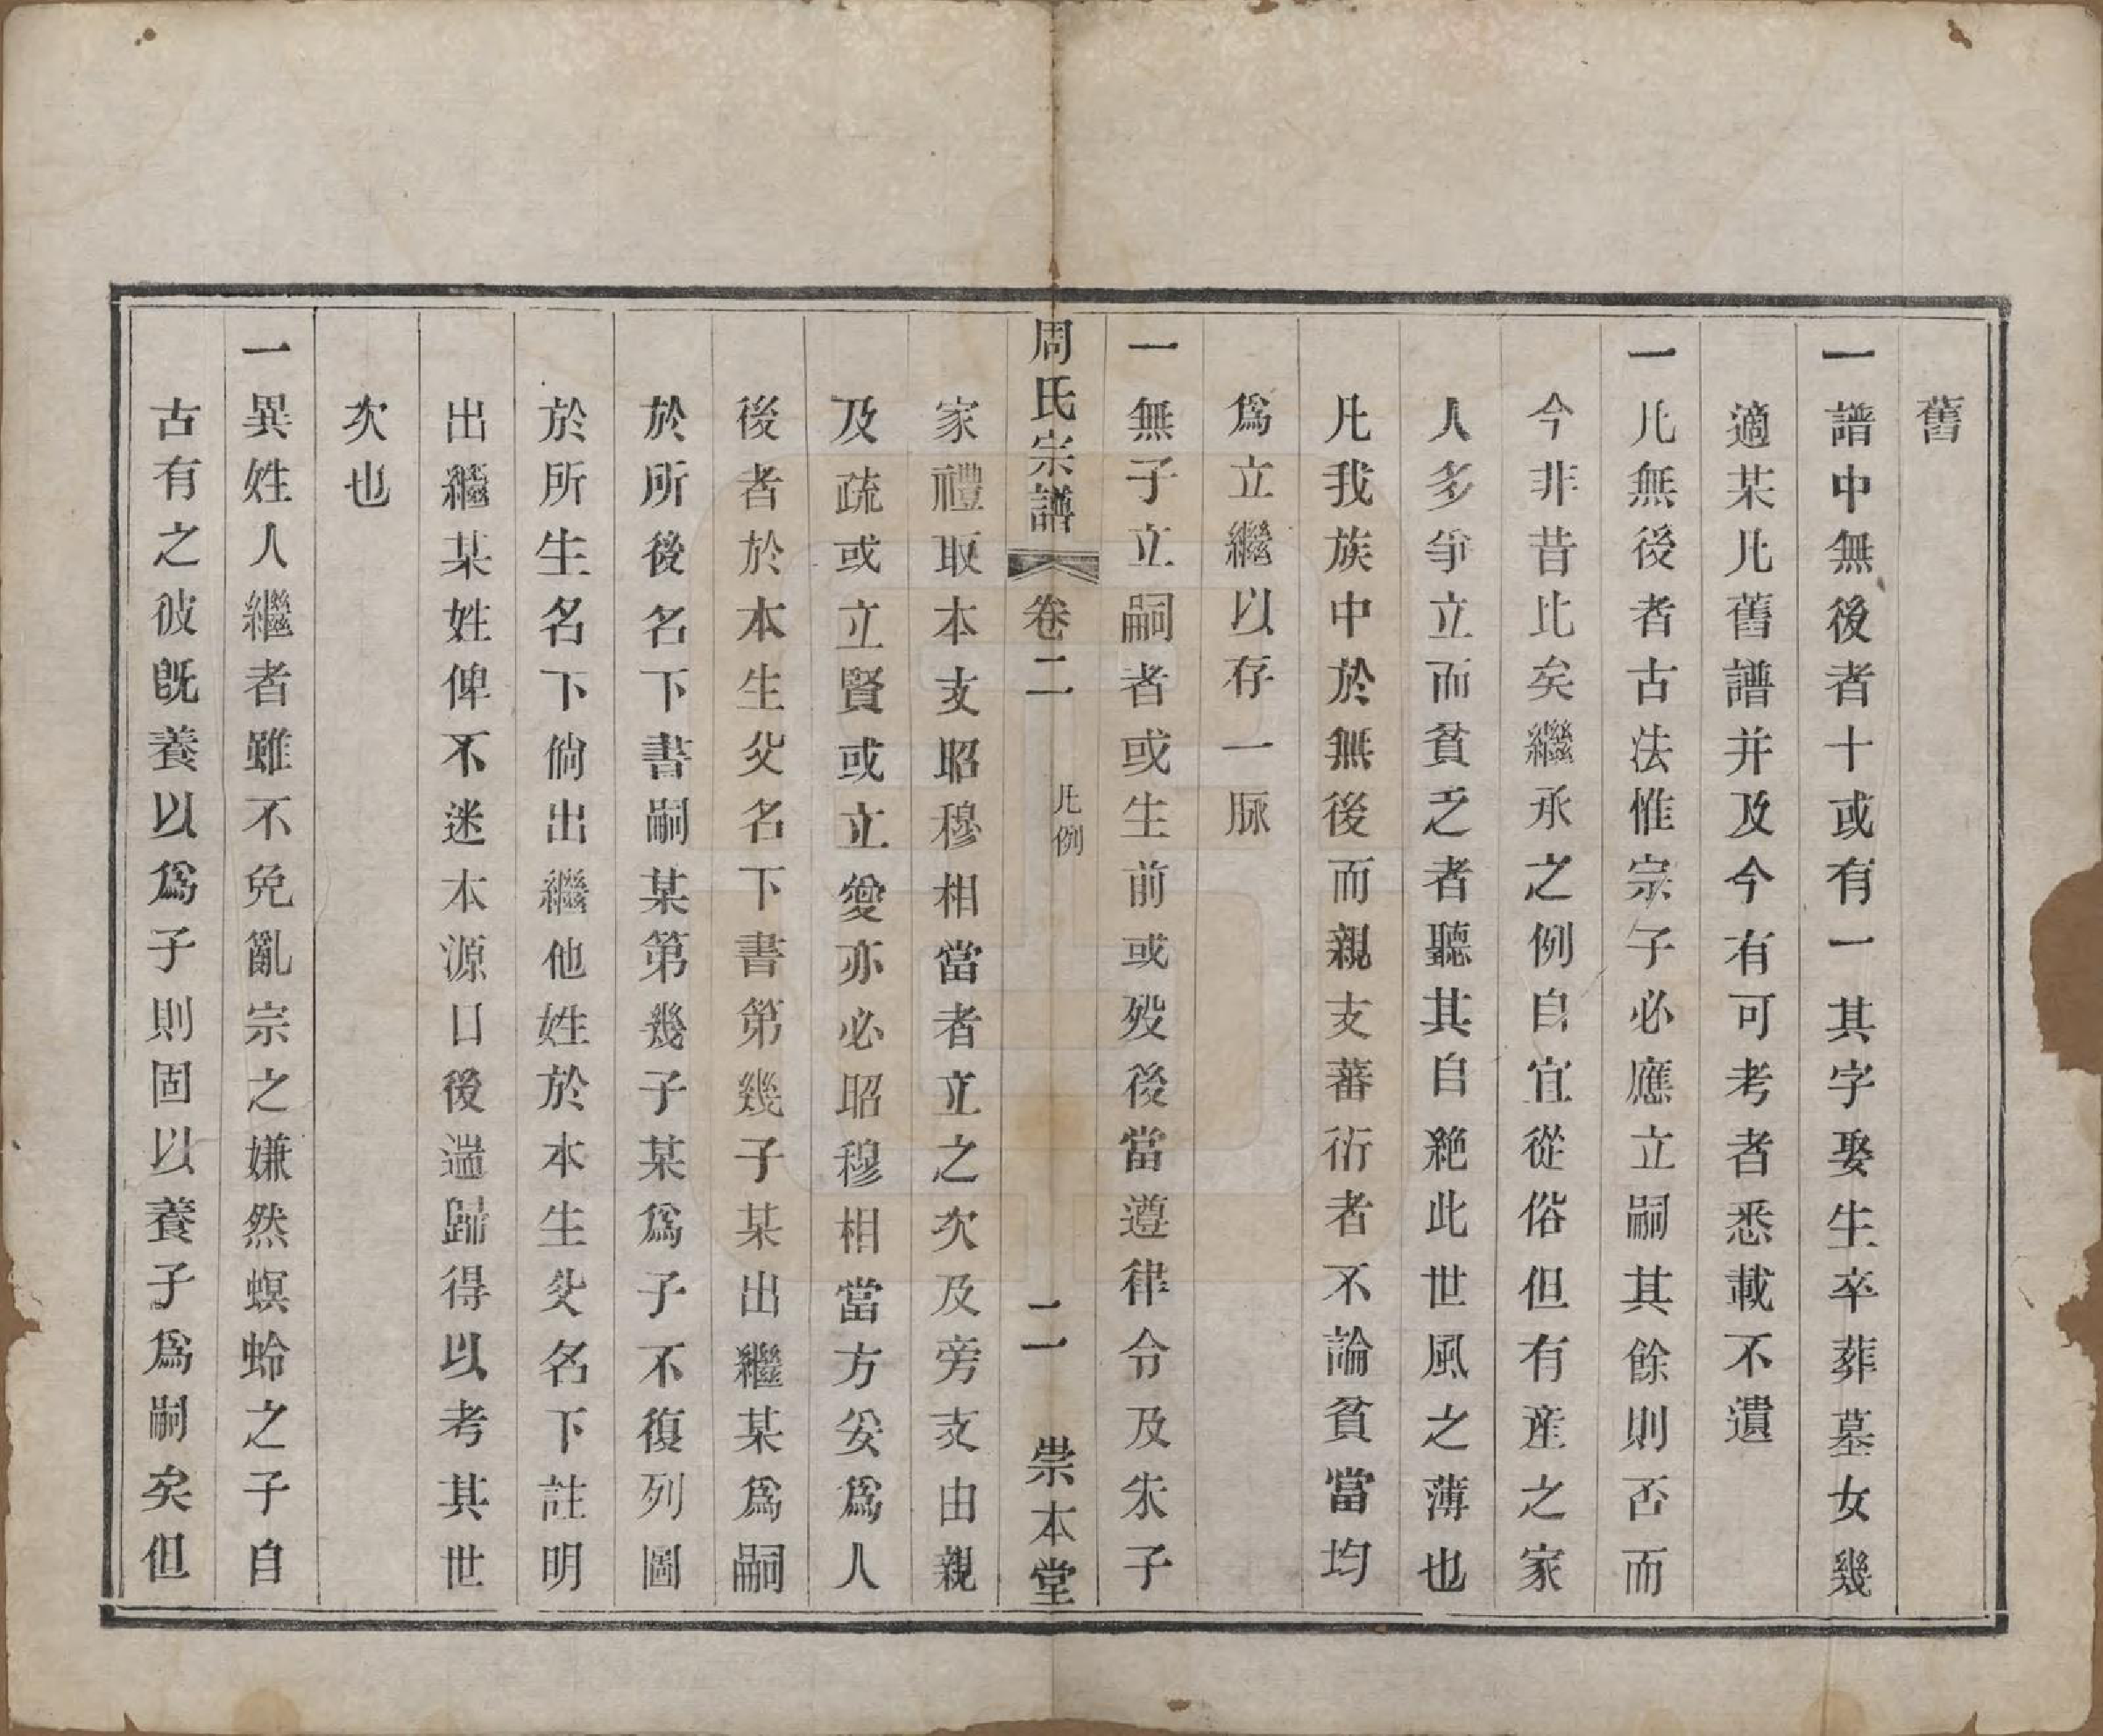 舊
一譜中無後者十或有一其字娶生卒葬墓女幾
適某凡舊譜并及今有可考者悉載不遺
一凡無後者古法惟宗子必應立嗣其餘則否而
今非昔比矣繼承之例自宜從俗但有産之家
人多爭立而貧乏者聽其自絕此世風之薄也
凡我族中於無後而親支蕃衍者不論貧當均
爲立繼以存一脈
一無子立嗣者或生前或歿後當遵律令及朱子
周氏宗譜 卷二 凡例 二 崇本堂
家禮取本支昭穆相當者立之次及旁支由親
及疏或立賢或立愛亦必昭穆相當方妥爲人
後者於本生父名下書第幾子某出繼某爲嗣
於所後名下書嗣某第幾子某爲子不復列圖
於所生名下倘出繼他姓於本生父名下註明
出繼某姓俾不迷本源日後遄歸得以考其世
次也
一異姓人繼者雖不免亂宗之嫌然螟蛉之子自
古有之彼既養以爲子則固以養子爲嗣矣但